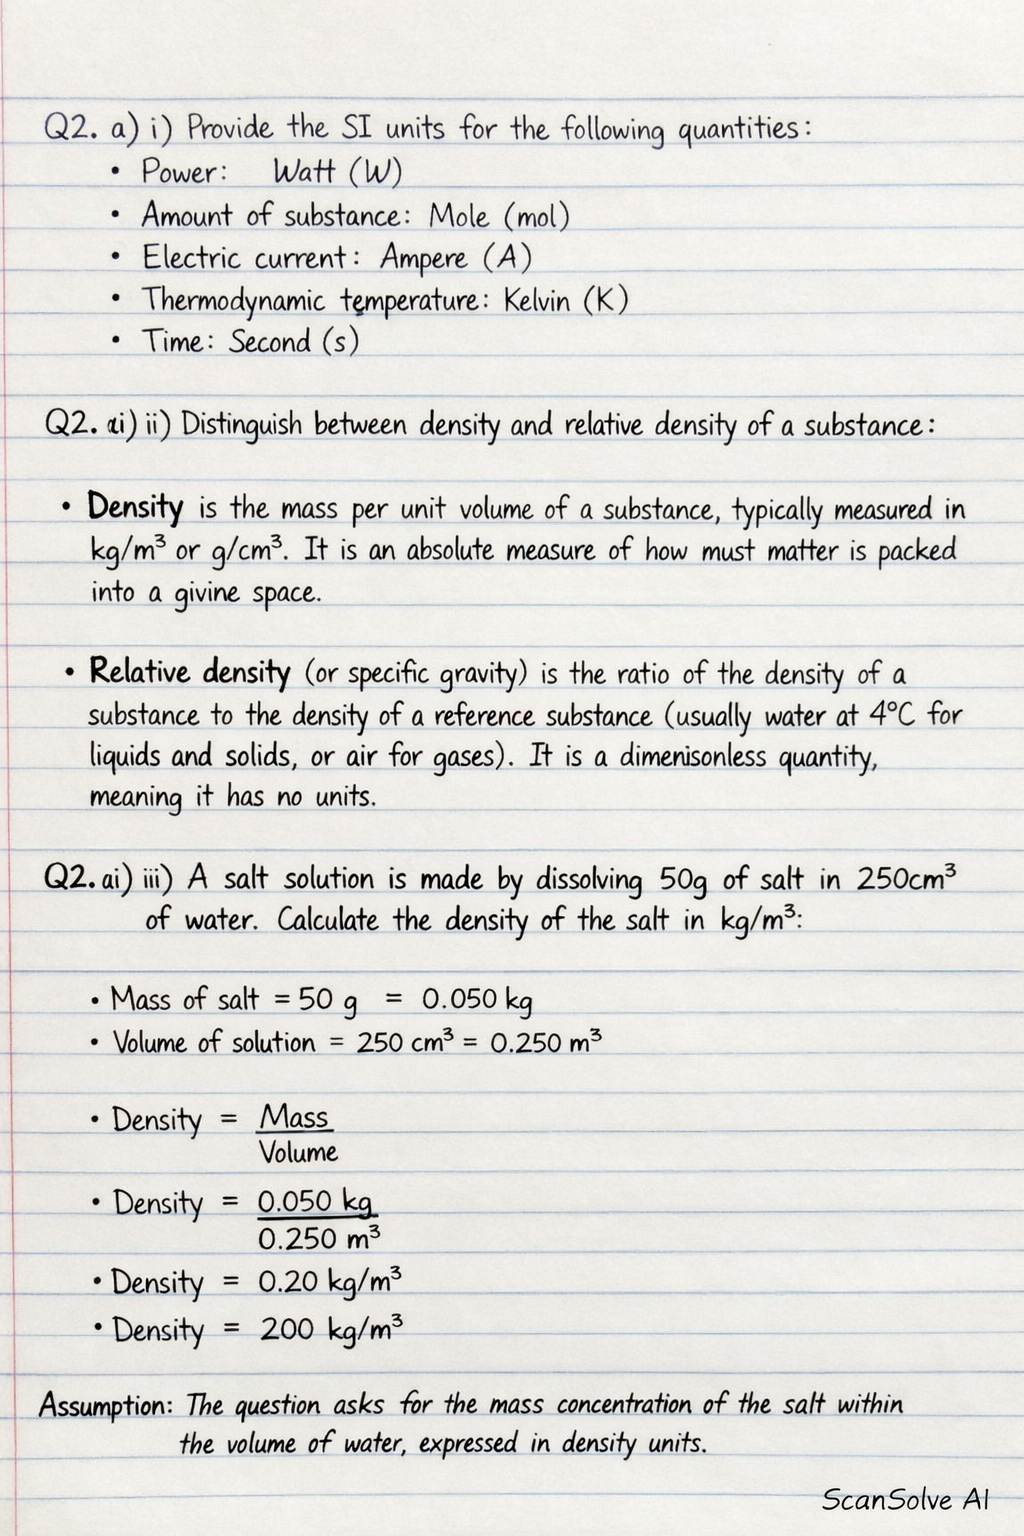 Q2. a) i) Provide the SI units for the following quantities:
• Power: Watt (W)
• Amount of substance: Mole (mol)
• Electric current: Ampere (A)
• Thermodynamic temperature: Kelvin (K)
• Time: Second (s)
Q2. ai) ii) Distinguish between density and relative density of a substance:
• Density is the mass per unit volume of a substance, typically measured in
kg/m³ or g/cm³. It is an absolute measure of how must matter is packed
into a givine space.
• Relative density (or specific gravity) is the ratio of the density of a
substance to the density of a reference substance (usually water at 4°C for
liquids and solids, or air for gases). It is a dimenisonless quantity,
meaning it has no units.
Q2. ai) iii) A salt solution is made by dissolving 50g of salt in 250cm³
of water. Calculate the density of the salt in kg/m³:
• Mass of salt = 50 g = 0.050 kg
• Volume of solution = 250 cm³ = 0.250 m³
• Density = Mass
Volume
• Density = 0.050 kg
0.250 m³
• Density = 0.20 kg/m³
• Density = 200 kg/m³
Assumption: The question asks for the mass concentration of the salt within
the volume of water, expressed in density units.
ScanSolve AI